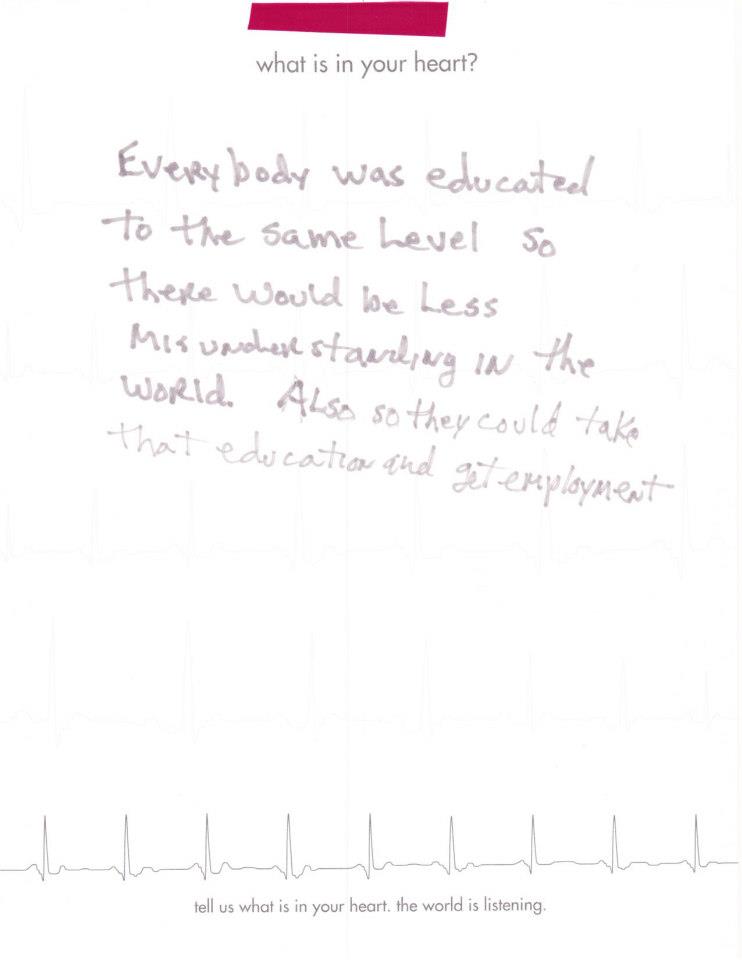 what is in your heart?
Everybody was educated
to the same Level so
there would be Less
Misunderstanding in the
World. Also so they could take
that education and get employment
tell us what is in your heart. the world is listening.